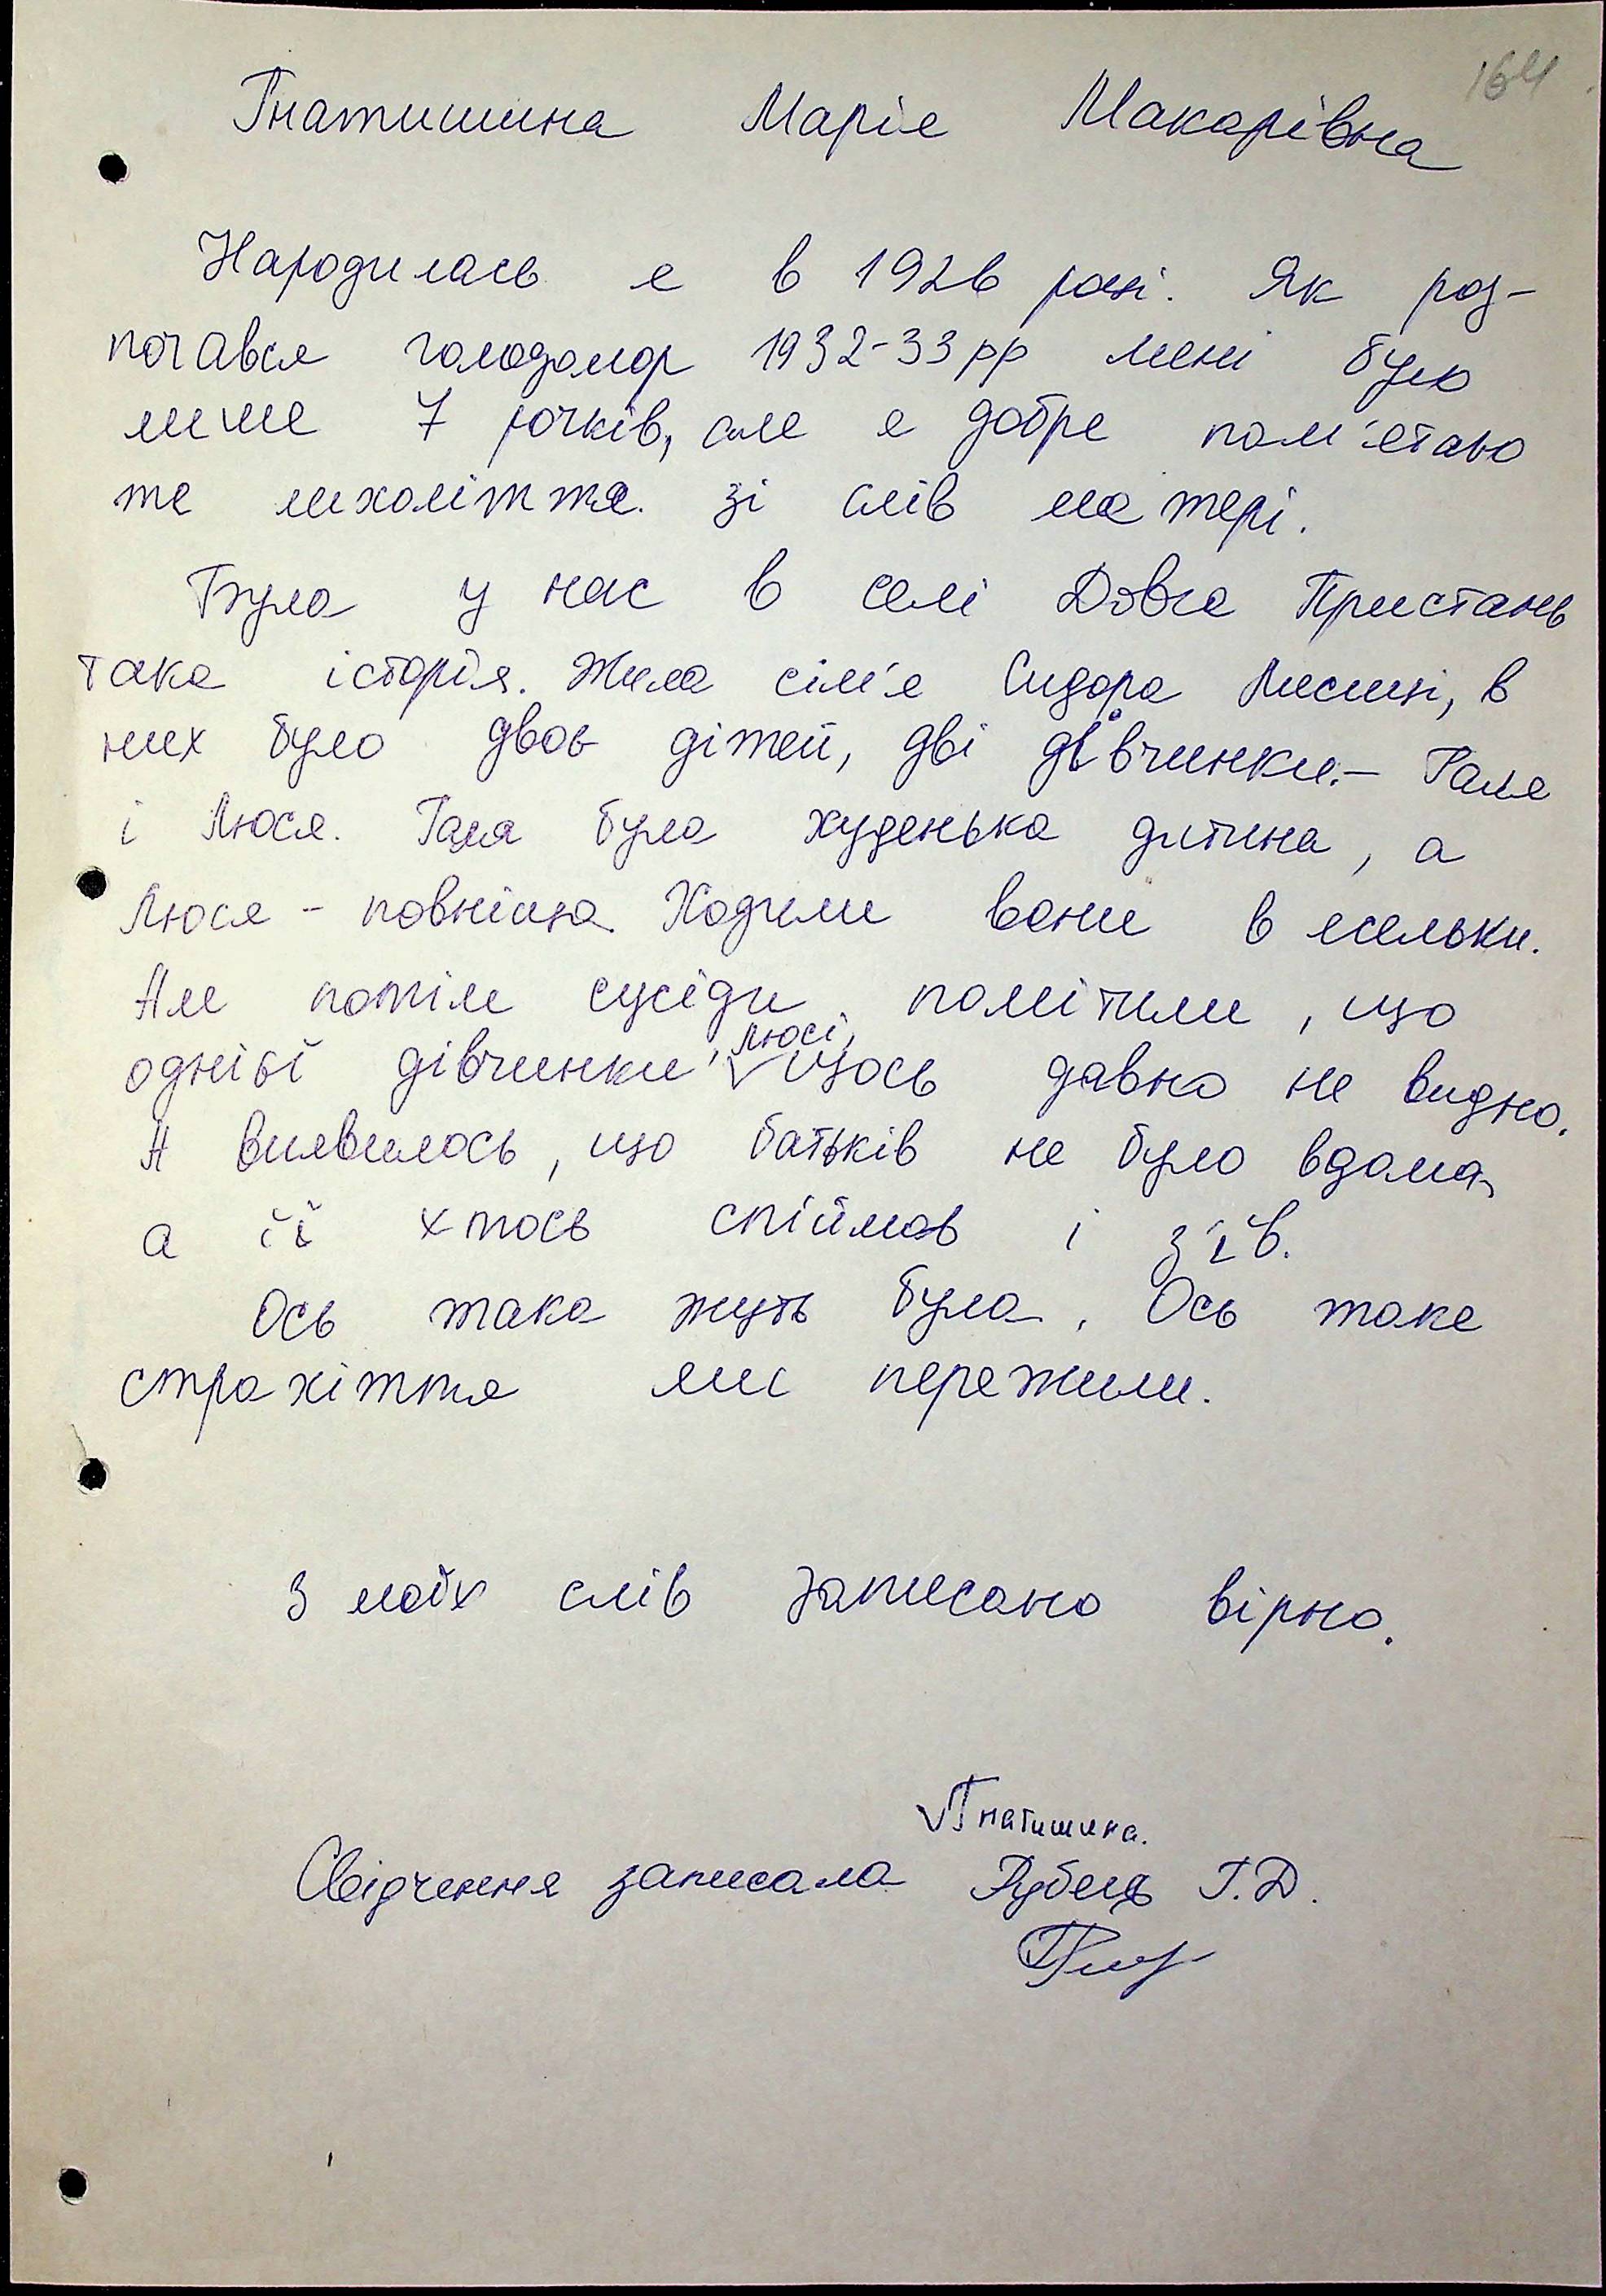 164
Гнатишина Марія Макарівна
Народилась я в 1926 році. Як роз-
почався голодомор 1932-33 рр мені було
лише 7 рочків, але я добре пам'ятаю
те лихоліття зі слів матері.
Була у нас в селі Довга Пристань
така історія. Жила сім'я Сидора Лисиці, в
них було двоє дітей, дві дівчинки. – Галя
і Люся. Галя була худенька дитина, а
Люся - повніша. Ходили вони в ясельки.
Але потім сусіди помітили, що
однієї дівчинки, Люсі, щось давно не видно.
А виявилось, що батьків не було вдома,
а її хтось спіймав і з'їв.
Ось така жуть була. Ось таке
страхіття ми пережили.
З моїх слів записано вірно.
Гнатишина.
Свідчення записала Рубець Г.Д.